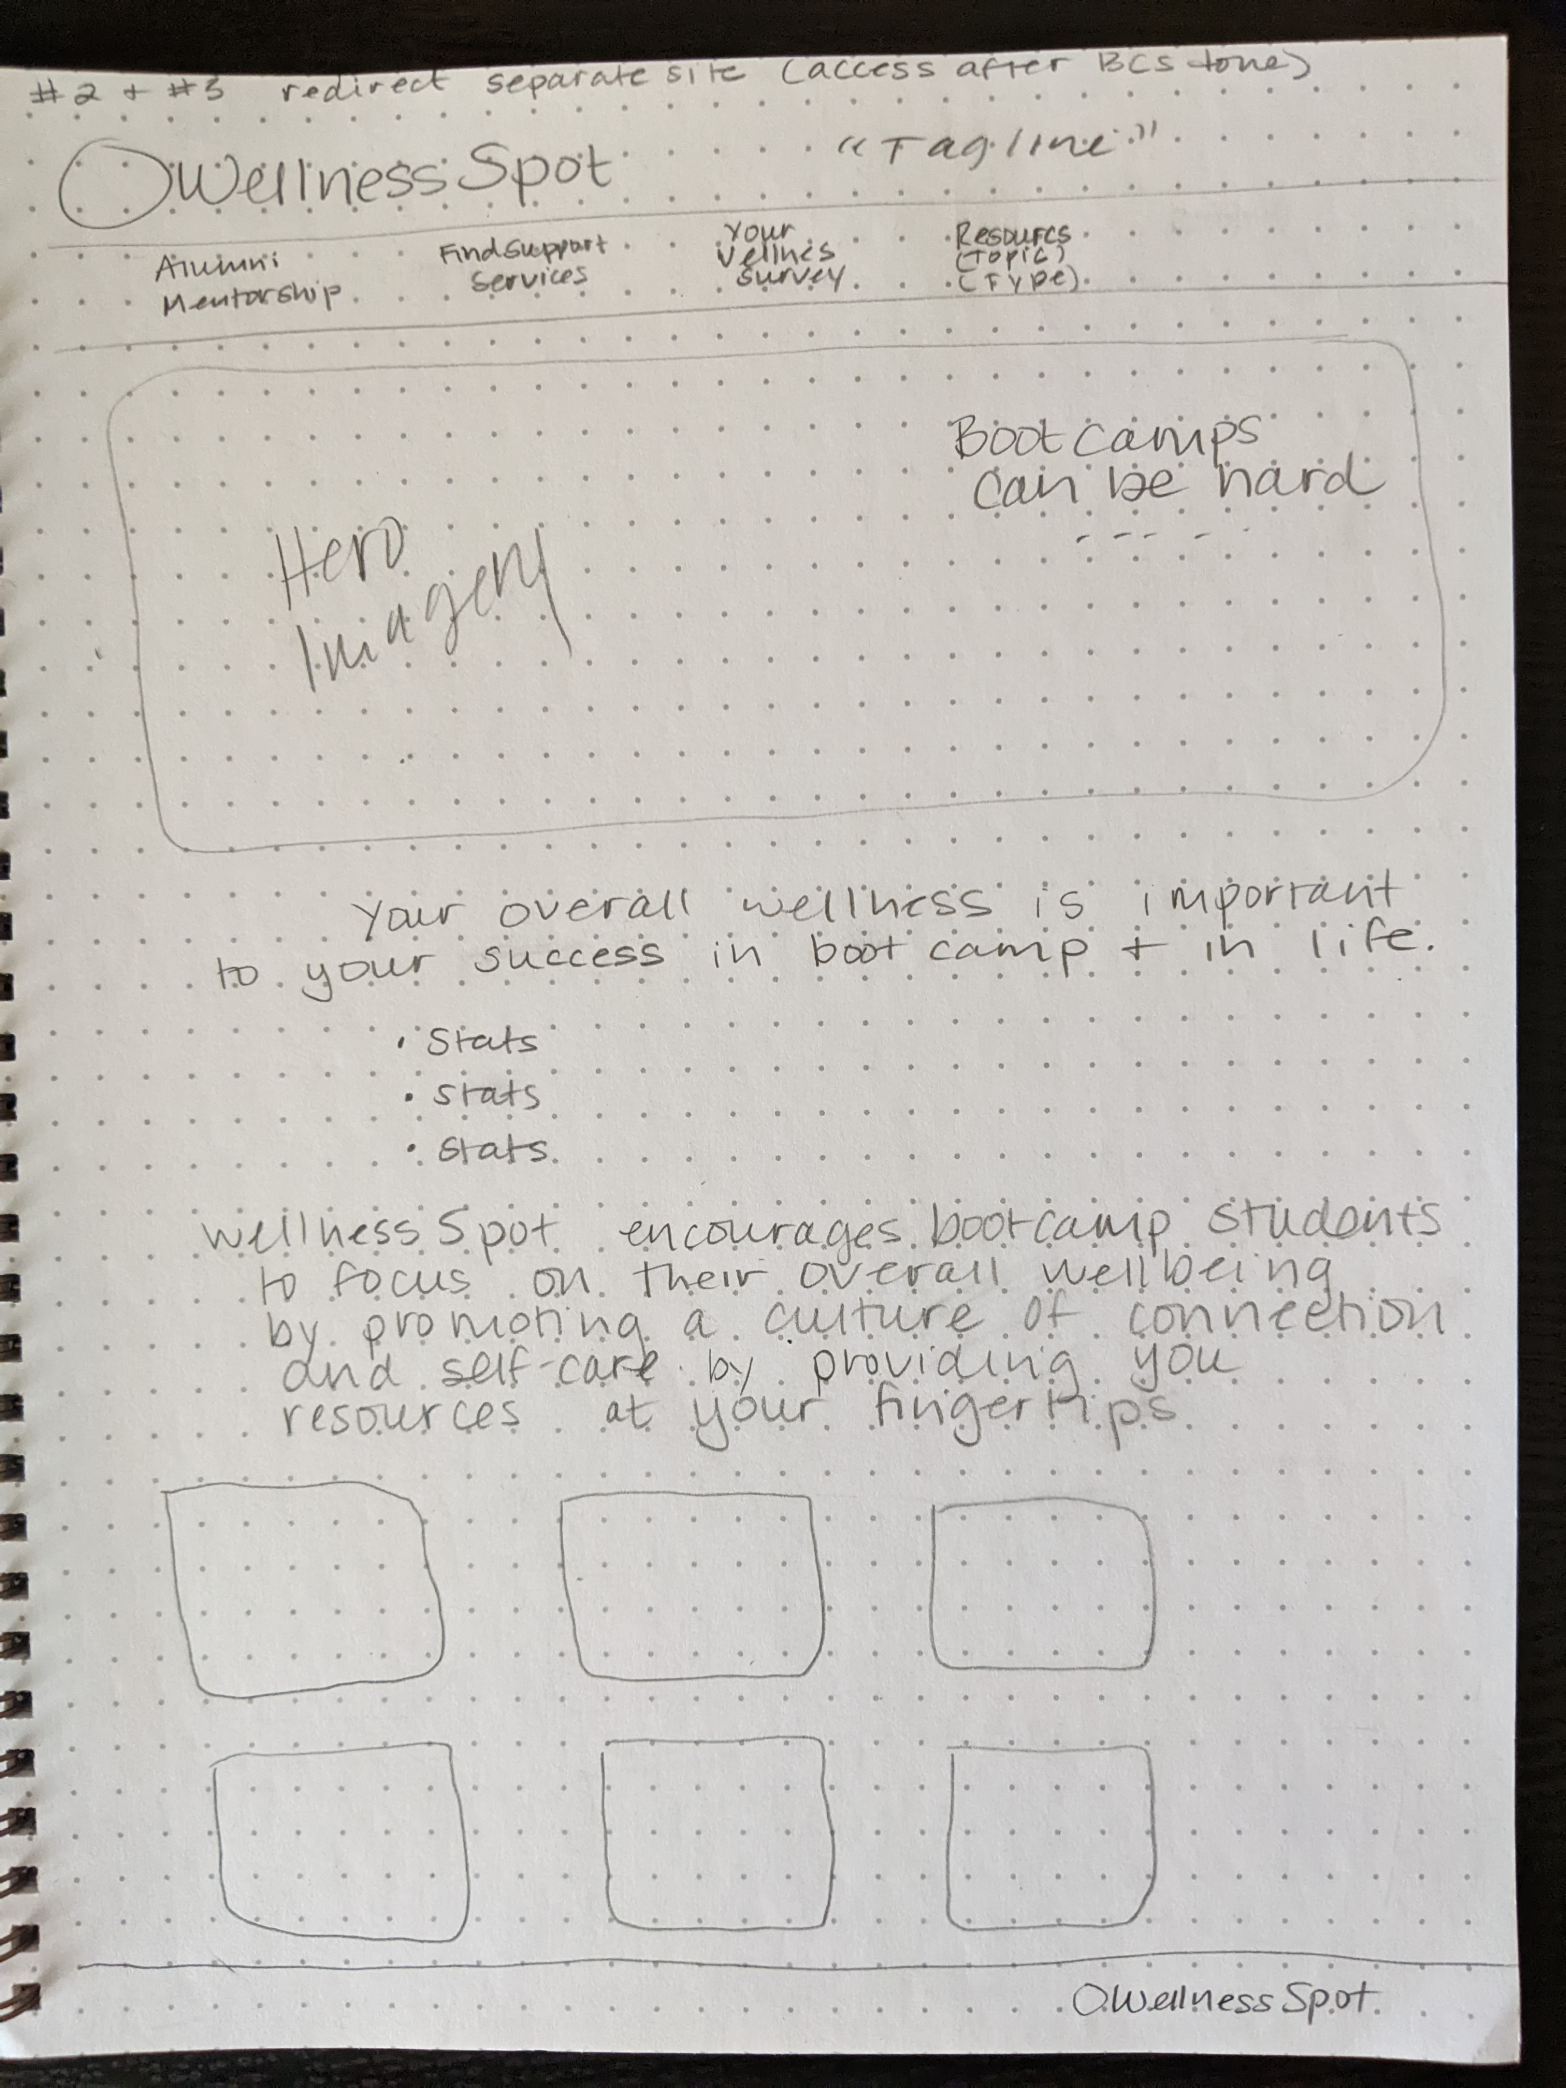 #2 + #3 redirect separate site (access after BCS done)
WellnessSpot "Tagline"
Alumni
Mentorship
Find Support
Services
Your
Wellnes
Survey
Resourcs
(Topic)
(Type)
Bootcamps
can be hard
Hero
Imagery
Your overall wellness is important
to your success in bootcamp + in life.
• Stats
• Stats
• Stats
WellnessSpot encourages bootcamp students
to focus on their overall wellbeing
by promoting a culture of connection
and self-care by providing you
resources at your fingertips
WellnessSpot